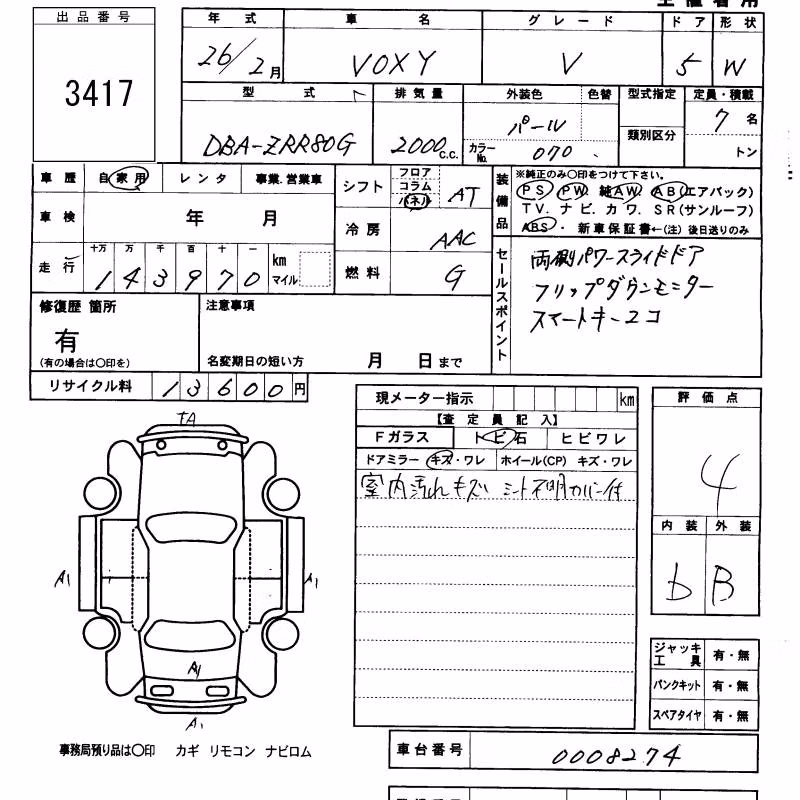 出品番号 年式 車名 グレード ドア 形状
3417 26/2月 VOXY V 5 W
型式 排気量 外装色 色替 型式指定 定員・積載
DBA-ZRR80G 2000c.c. パール 類別区分 7名
カラーNo. 070 トン
車歴 自家用 レンタ 事業.営業車 シフト フロア コラム パネル AT
装備品 ※純正のみ〇印をつけて下さい。
PS PW 純AW AB(エアバッグ)
TV.ナビ.カワ.SR(サンルーフ)
ABS・新車保証書←(注)後日送りのみ
車検 年 月 冷房 AAC
走行 十万 万 千 百 十 一 km マイル
143970 燃料 G
セールスポイント 両側パワースライドドア
フリップダウンモニター
スマートキー2コ
修復歴 箇所 注意事項
有
(有の場合は〇印を) 名変期日の短い方 月 日まで
リサイクル料 13600円
現メーター指示 km 評価点
【査定員記入】
Fガラス トビ石 ヒビワレ
ドアミラー キズ・ワレ ホイール(CP) キズ・ワレ
室内汚れキズ シート不明カバー付
4
内装 外装
b B
A1 A1
A1
A1
ジャッキ工具 有・無
パンクキット 有・無
スペアタイヤ 有・無
事務局預り品は〇印 カギ リモコン ナビロム
車台番号 0008274